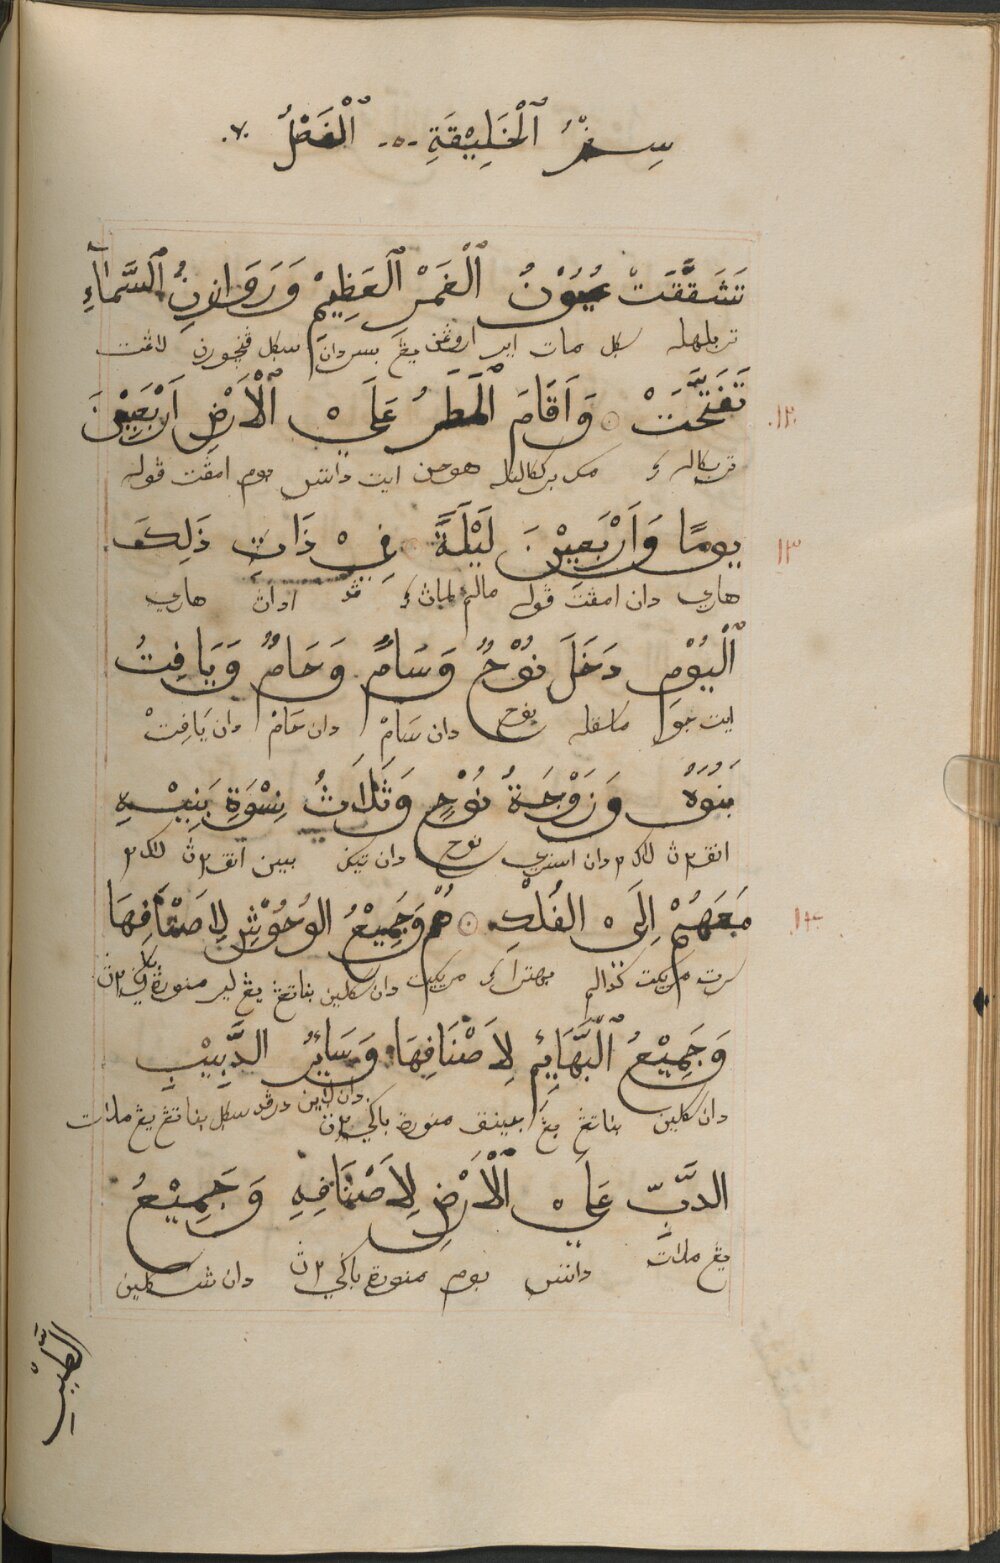 سِفْرُ ٱلْخَلِيْقَةِ ٱلْفَصْلُ ٧
تَشَقَّقَتْ عُيُوْنُ ٱلْغَمْرِ ٱلْعَظِيْمِ وَرَوَازِنُ ٱلسَّمَاۤءِ
سكل مات اير يڠ بسر دان سكل
تَفَتَّحَتْ وَاَقَامَ ٱلْمَطَرُ عَلَيْ ٱلْأَرْضِ اَرْبَعِيْنَ
١٢
مك هوجن ايت داتس بوم امڤت ڤوله
يومًا وَاَرْبَعِيْنَ لَيْلَةً فِيْ ذَاتِ ذَلِكَ
١٣
هاري دان امڤت ڤوله مالم هاري
ٱلْيُوْمِ دَخَلَ نُوْحٌ وَسَامٌ وَحَامٌ وَيَافِتُ
ايت جوا ماسقله نوح دان سَامْ دان حَامْ دان يَافِتْ
بَنُوْهُ وَزَوْجَةُ نُوْحٍ وَثَلَاثُ نِسْوَةِ بَنِيْهِ
انق٢ڽ لاك٢ دان استري نوح دان تيݢ بيني انق٢ڽ لاك٢
مَعَهُمْ اِلَىْ الفُلْكِ هُمْ وَجَمِيْعُ الوُحُوْشِ لِاَصْنَافِهَا
١٤
سرت مريكت كدالم بهترا مريكيت دان سكلين بناتڠ يڠ لير منورة باݢي٢ڽ
وَجَمِيْعُ ٱلْبَهَايِمِ لِاَصْنَافِهَا وَسَايِرُ الدَّبِيْبِ
دان سكلين بناتڠ يڠ جينق منورة باݢي٢ڽ دان لاين درڤد سكل بناتڠ يڠ ملات
الدَّبِّ عَلَيْ ٱلْأَرْضِ لِاَصْنَافِهِ وَجَمِيْعُ
يڠ ملات داتس بوم منورة باݢي٢ڽ دان سكلين
الطَّيْرِ